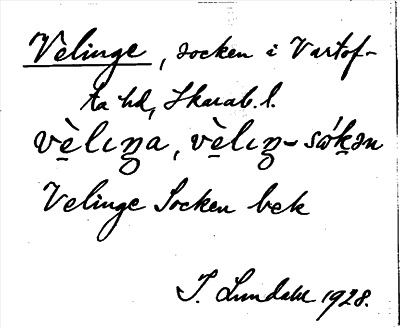 Velinge, socken i Vartof-
ta hd, Skarab. l.
vè̱lıŋa, vè̱lıŋ- sǿḵən
Velinge Socken bek
I. Lundahl 1928.